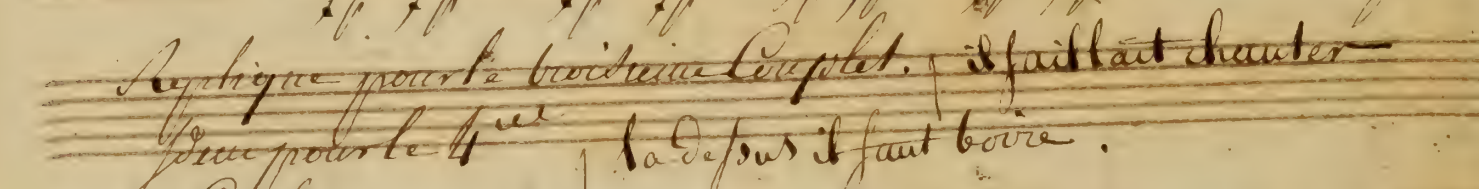 Replique pour le troisieme Couplet. il faillait chanter
Idem pour le 4me la dessus il faut boire.